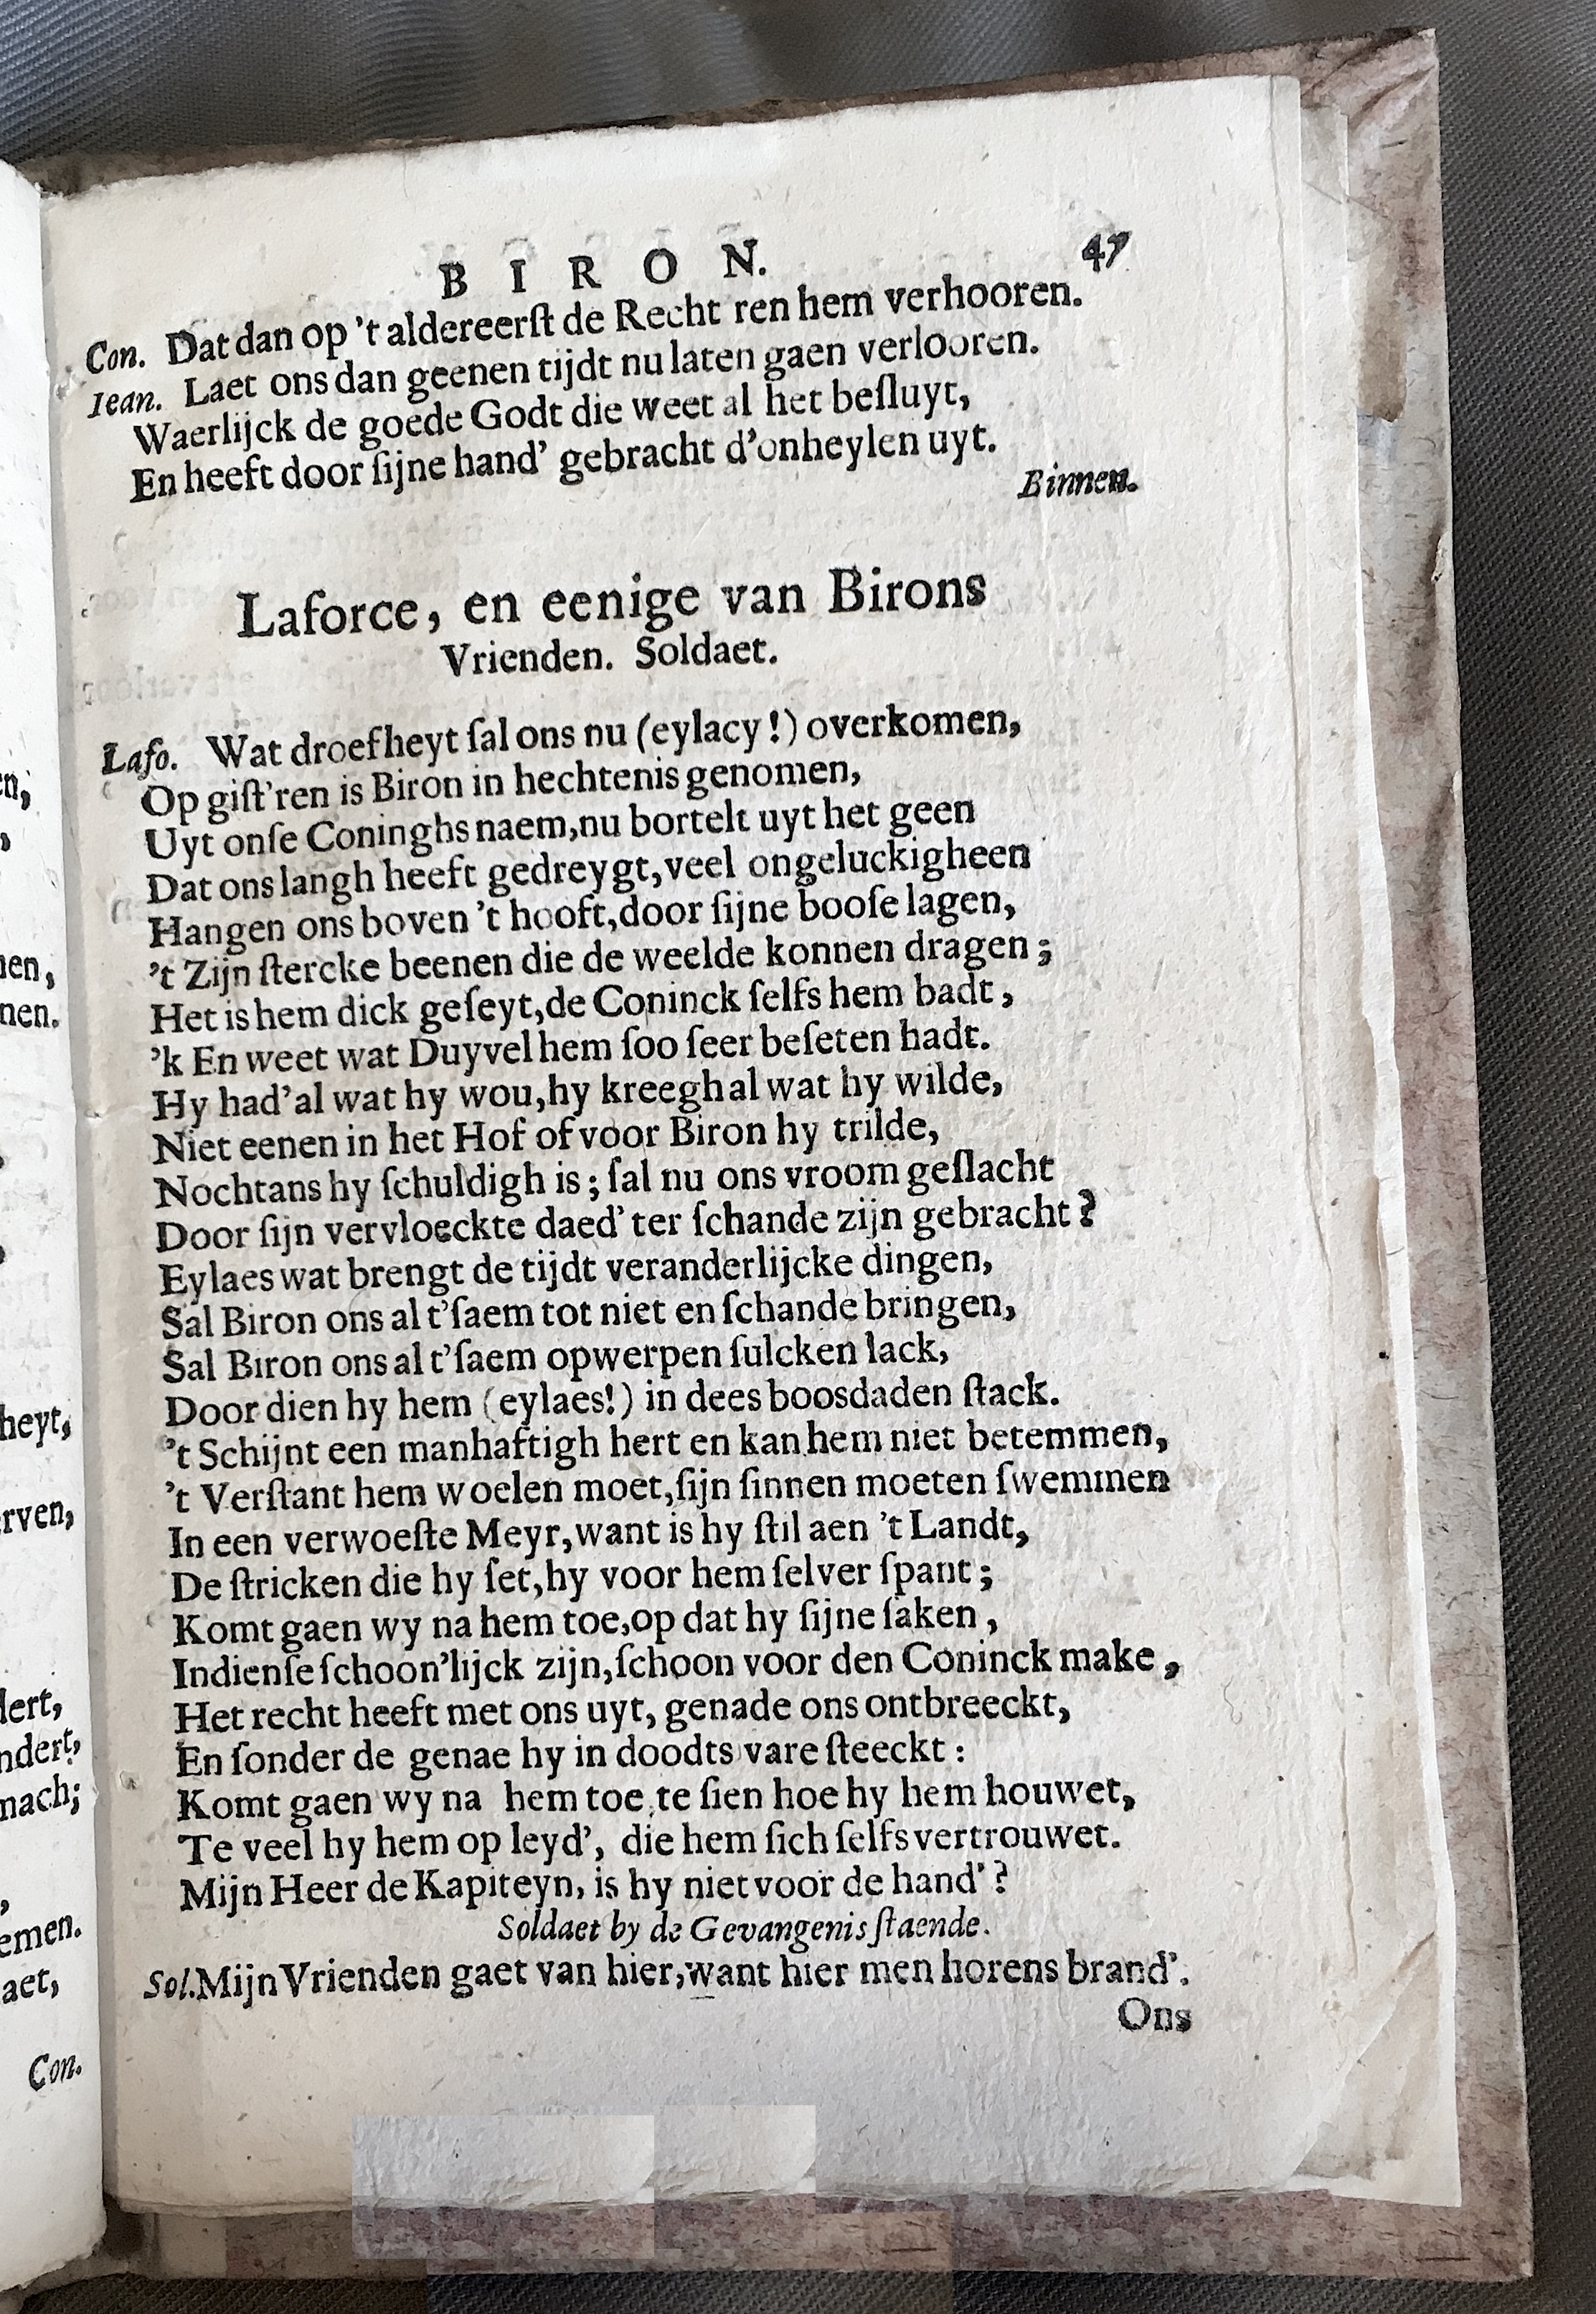 B I R O N. 47
Con. Dat dan op 't aldereerſt de Recht ren hem verhooren.
Iean. Laet ons dan geenen tijdt nu laten gaen verlooren.
Waerlijck de goede Godt die weet al het beſluyt,
En heeft door ſijne hand' gebracht d'onheylen uyt.
Binnen.
Laforce, en eenige van Birons
Vrienden. Soldaet.
Lafo. Wat droefheyt ſal ons nu (eylacy!) overkomen,
Op giſt'ren is Biron in hechtenis genomen,
Uyt onſe Coninghs naem, nu bortelt uyt het geen
Dat ons langh heeft gedreygt, veel ongeluckigheen
Hangen ons boven 't hooft, door ſijne booſe lagen,
't Zijn ſtercke beenen die de weelde konnen dragen;
Het is hem dick geſeyt, de Coninck ſelfs hem badt,
'k En weet wat Duyvel hem ſoo ſeer beſeten hadt.
Hy had' al wat hy wou, hy kreegh al wat hy wilde,
Niet eenen in het Hof of voor Biron hy trilde,
Nochtans hy ſchuldigh is; ſal nu ons vroom geſlacht
Door ſijn vervloeckte daed' ter ſchande zijn gebracht?
Eylaes wat brengt de tijdt veranderlijcke dingen,
Sal Biron ons al t'ſaem tot niet en ſchande bringen,
Sal Biron ons al t'ſaem opwerpen ſulcken lack,
Door dien hy hem (eylaes!) in dees boosdaden ſtack.
't Schijnt een manhaftigh hert en kan hem niet betemmen,
't Verſtant hem woelen moet, ſijn ſinnen moeten ſwemmen
In een verwoeſte Meyr, want is hy ſtil aen 't Landt,
De ſtricken die hy ſet, hy voor hem ſelver ſpant;
Komt gaen wy na hem toe, op dat hy ſijne ſaken,
Indienſe ſchoon'lijck zijn, ſchoon voor den Coninck make,
Het recht heeft met ons uyt, genade ons ontbreeckt,
En ſonder de genae hy in doodts vare ſteeckt:
Komt gaen wy na hem toe, te ſien hoe hy hem houwet,
Te veel hy hem op leyd', die hem ſich ſelfs vertrouwet.
Mijn Heer de Kapiteyn, is hy niet voor de hand'?
Soldaet by de Gevangenis ſtaende.
Sol. Mijn Vrienden gaet van hier, want hier men horens brand'.
Ons
n,
,
nen,
nen.
heyt,
rven,
lert,
ndert,
mach;
,
emen.
aet,
Con.